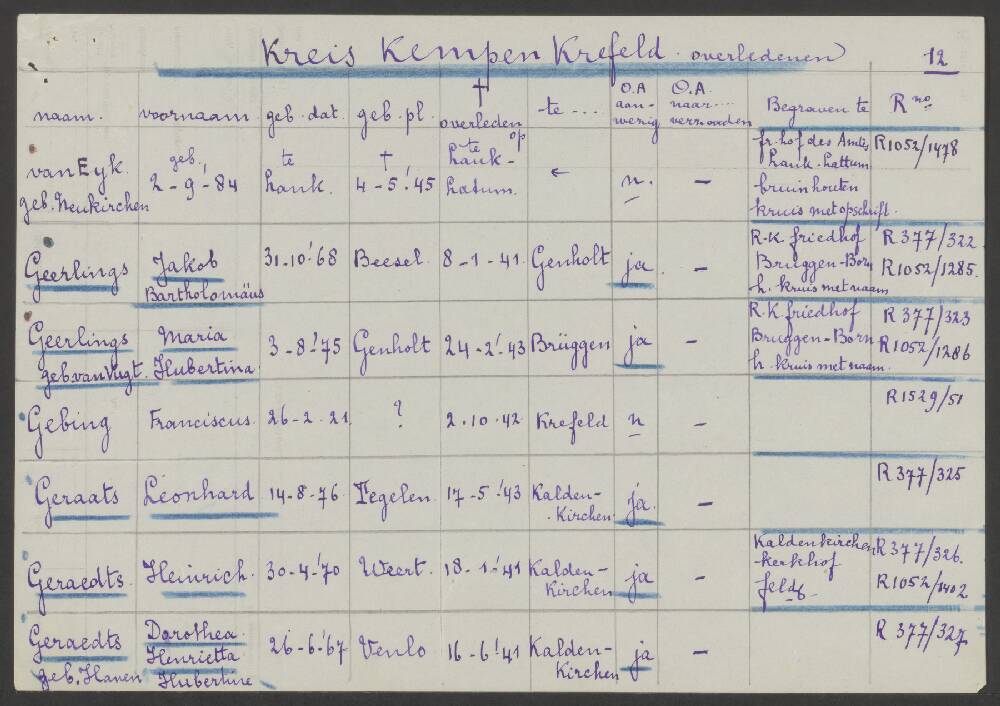 Kreis Kempen Krefeld. overledenen 12
naam. voornaam geb. dat. geb. pl. † overleden op te .... O.A aanwezig O.A. naar.... verzonden Begraven te R no
van Eyk. geb. Neukirchen geb. 2-9-'84 te hauk. † 4-5-'45 te hauk-hatum. ← n. – fr. hof des Amtes hauk-hattum bruin houten kruis met opschrift. R1052/1478
Geerlings Jakob Bartholomäus 31-10-'68 Beesel. 8-1-41. Genholt ja – R.K. friedhof Bruggen-Born h. kruis met naam R377/322 R1052/1285.
Geerlings geb. van Vugt. Maria Hubertina 3-8-'75 Genholt 24-2-'43 Brüggen ja – R.K. friedhof Bruggen-Born h. kruis met naam. R377/323 R1052/1286
Gebing Franciscus. 26-2-21. ? 2.10.42 Krefeld n – R1529/51
Geraats Leonhard 14-8-76. Tegelen. 17-5-'43 Kalden-Kirchen ja. – R377/325
Geraedts. Heinrich. 30-4-'70 Weert. 18-1-'41 Kalden-Kirchen ja – Kaldenkirchen kerkhof R377/326. R1052/1402
Geraedts geb. Hanen Dorothea. Henrietta Hubertine 26-6-'67 Venlo 16-6-'41 Kalden-Kirchen ja – R 377/327